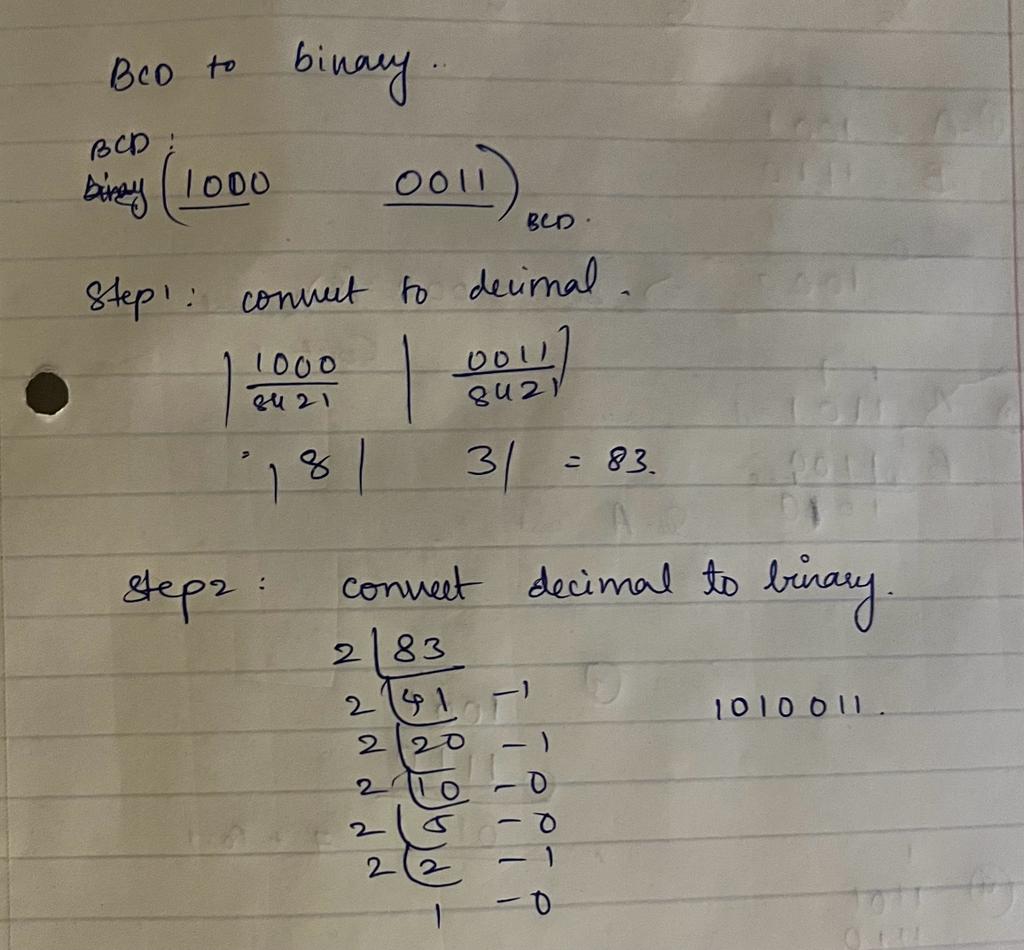 BCD to binary..
BCD :
binay (1000 0011)BCD.
Step1: convert to decimal.
| 1000 | 0011 |
8421 8421
= | 8 | 3 | = 83.
Step2: convert decimal to binary.
2 | 83
2 | 41 - 1 1010011.
2 | 20 - 1
2 | 10 - 0
2 | 5 - 0
2 | 2 - 1
1 - 0